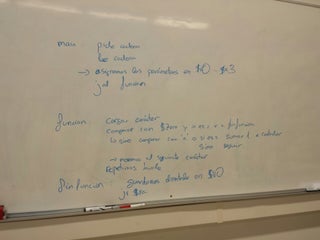 main pide cadena
lee cadena
→ asignamos los parámetros en $a0 - $a3
jal funcion
funcion: cargar carácter
comparar con $zero y si es, ir a finfuncion
lo que comparar con 'x' o si es sumar 1 a contador
sino seguir
→ movemos al siguiente carácter
repetimos bucle
fin funcion: guardamos contador en $v0
jr $ra